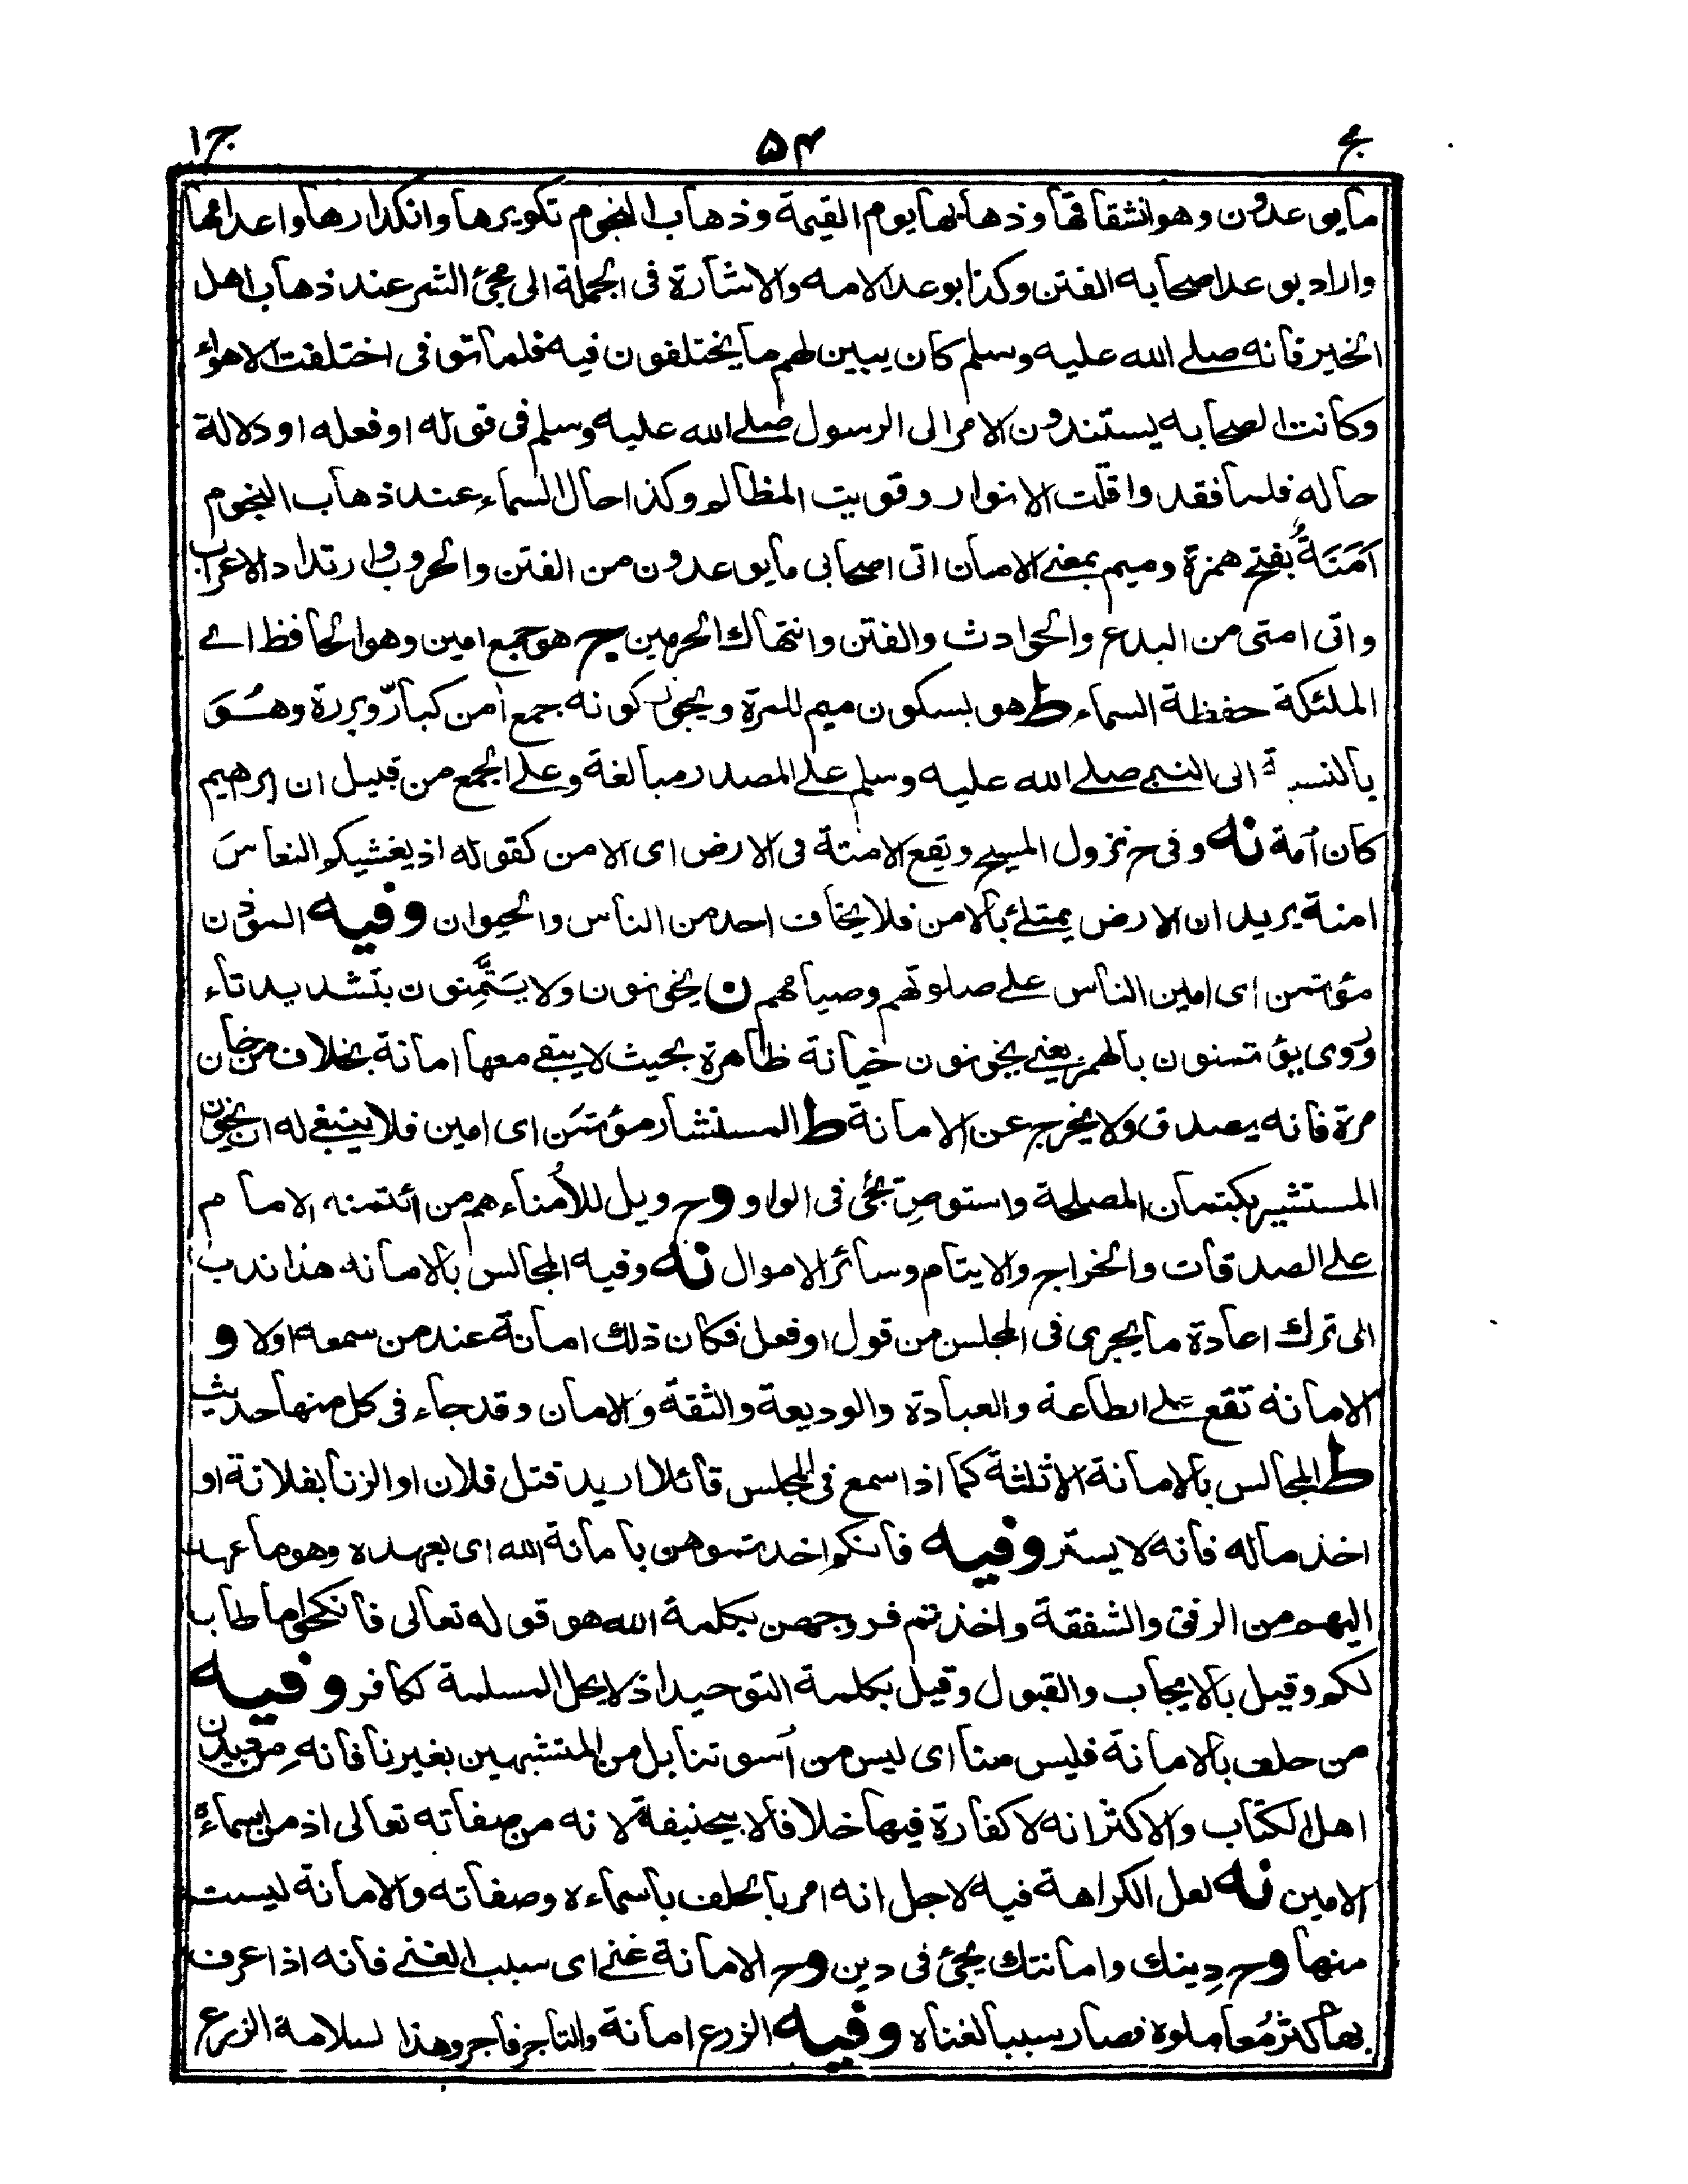 مج ۵۴ ج ۱
ما يوعدون وهو انشقاقها وذهابها يوم القيمة وذهاب النجوم تكويرها وانكدارها واعدامها
واراد بوعد اصحابه الفتن وكذا بوعد الامه والاشارة فى الجملة الى مجئ الشر عند ذهاب اهل
الخير فانه صلے الله عليه وسلم كان يبين لهم ما يختلفون فيه فلما توفى اختلفت الاهواء
وكانت الصحابه يستندون الامر الى الرسول صلے الله عليه وسلم فى قوله او فعله او دلالة
حاله فلما فقد واقلّت الانوار وقويت المظالم وكذا حال السماء عند ذهاب النجوم
اَمَنَةٌ بفتح همزة وميم بمعنے الامان اتى اصحابى ما يوعدون من الفتن والحروب وارتداد الاعراب
واتى امتى من البدع والحوادث والفتن وانتهاك الحرمين ج هو جمع امين وهو الحافظ اے
الملئكة حفظة السماء ط هو بسكون ميم للمرة ويجوز كونه جمع امن كبارّ وبررة وهُوَ
بالنسبة الى النبى صلے الله عليه وسلم علے المصدر مبالغة وعلے الجمع من قبيل ان ابرهيم
كان أمة نه وفى ح نزول المسيح وتقع الامنة فى الارض اى الامن كقوله اذ يغشيكم النعاسَ
امنة يريد ان الارض يمتلئ بالامن فلا يخاف احد من الناس والحيوان وفيه الموذن
مؤتمن اى امين الناس علے صلوتهم وصيامهم ن يخونون ولا يَتَّمِنون بتشديد تاء
وروى يؤتمنون بالهمز يعنے يخونون خيانة ظاهرة بحيث لا يبقے معها امانة بخلاف من خان
مرة فانه يصدق ولا يخرج عن الامانة ط المستشار مؤتمَن اى امين فلا ينبغے له ان يخون
المستشير بكتمان المصلحة واستوصِ يجئ فى الواو وح ويل للاُمناء هم من ائتمنه الامام
علے الصدقات والخراج والايتام وسائر الاموال نه وفيه المجالس بالامانه هذا ندب
الى ترك اعادة ما يجرى فى المجلس من قول او فعل فكان ذلك امانة عند من سمعه اولا و
الامانة تقع علے الطاعة والعبادة والوديعة والثقة وَالامان وقد جاء فى كل منها حديث
ط المجالس بالامانة الا ثلثة كما اذا سمع فى المجلس قائلا اريد قتل فلان او الزنا بفلانة او
اخذ ماله فانه لا يستر وفيه فانكم اخذتموهن بامانة الله اى بعهده وهو ما عهد
اليهم من الرفق والشفقة واخذتم فروجهن بكلمة الله هو قوله تعالى فانكحوا ما طاب
لكم وقيل بالايجاب والقبول وقيل بكلمة التوحيد اذ لا يحل المسلمة لكافر وفيه
من حلف بالامانة فليس منا اى ليس من اُسوتنا بل من المتشبهين بغيرنا فانه مِن ديدن
اهل الكتاب والاكثر انه لا كفارة فيها خلافا لابيحنيفة لانه من صفاته تعالى اذ من اسمائه
الامين نه لعل الكراهة فيه لاجل انه امر بالحلف باسماءه وصفاته والامانة ليست
منها وح دِينك وامانتك يجئ فى دين وح الامانة غنے اى سبب الغنے فانه اذا عرف
بها كثر مُعاملوه فصار سببا لغناه وفيه الزرع امانة والتاجر فاجر وهذا لسلامة الزرع